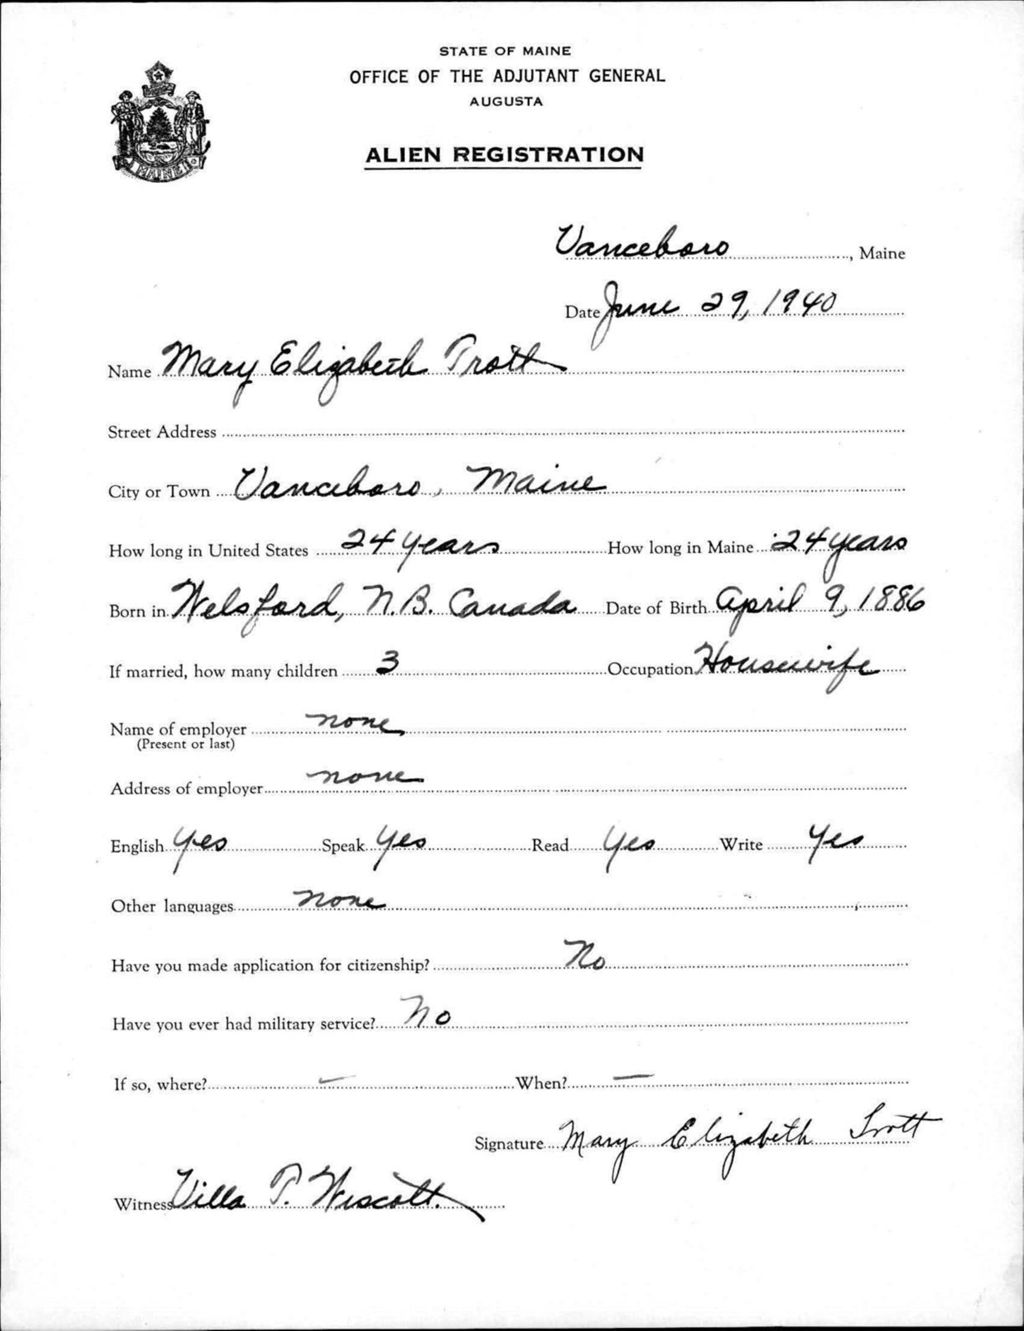 STATE OF MAINE
OFFICE OF THE ADJUTANT GENERAL
AUGUSTA
ALIEN REGISTRATION
MAINE
Vanceboro, Maine
Date June 29, 1940
Name Mary Elizabeth Trott
Street Address
City or Town Vanceboro, Maine
How long in United States 24 years How long in Maine 24 years
Born in Welsford, N.B. Canada Date of Birth April 9, 1886
If married, how many children 3 Occupation Housewife
Name of employer none
(Present or last)
Address of employer none
English Yes Speak Yes Read Yes Write Yes
Other languages none
Have you made application for citizenship? No
Have you ever had military service? No
If so, where? — When? —
Signature Mary Elizabeth Trott
Witness Villa P. Wescott.